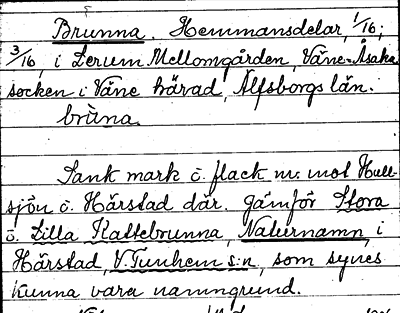 Brunna. Hemmansdelar, 1/16;
3/16, i Lerum Mellomgården, Väne-Åsaka
socken i Väne härad, Älfsborgs län.
brùna.
Sank mark o. flack nv. mot Hull-
sjön o. Härstad där. Jämför Stora
o. Lilla Kattebrunna, Naturnamn, i
Härstad, V. Tunhem s:n, som synes
kunna vara namngrund.